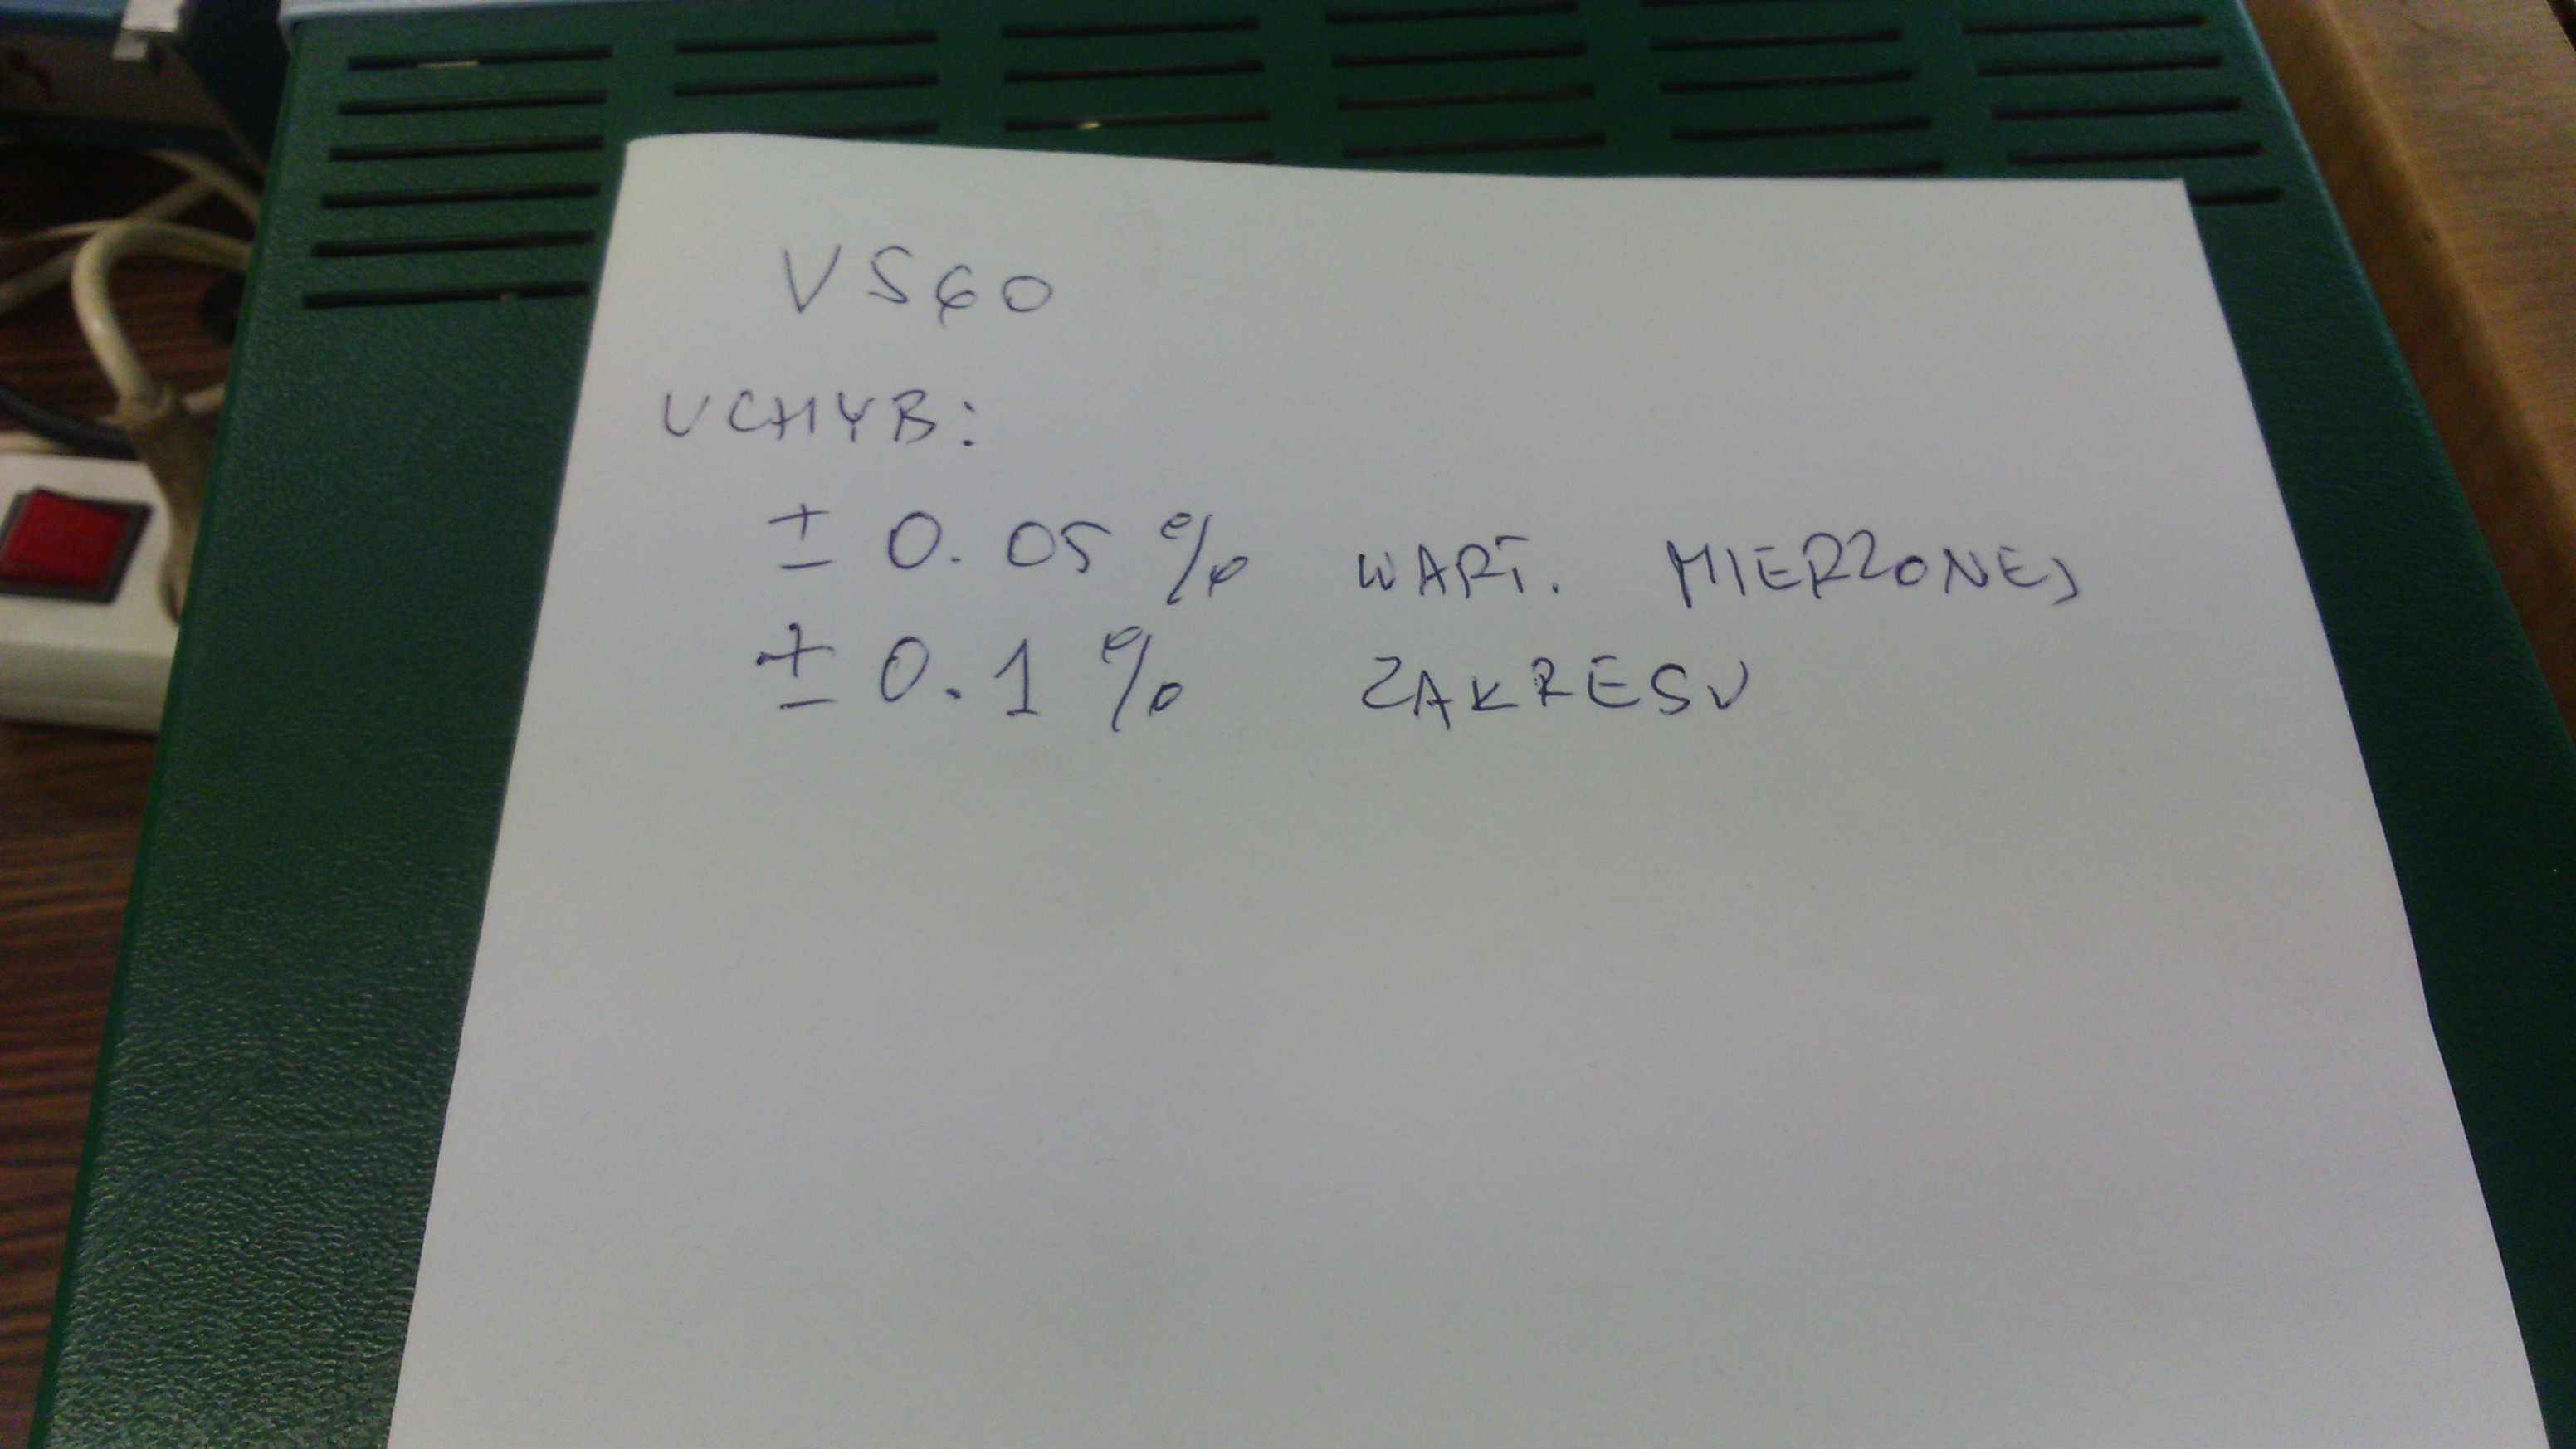 V560
UCHYB:
± 0.05 % WART. MIERZONEJ
± 0.1 % ZAKRESU